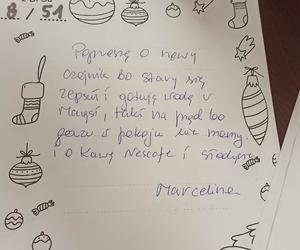 8/51
Poproszę o nowy
czajnik bo stary się
zepsuł i gotuję wodę w
taki na prąd bo
gazu w pokoju nie mamy.
i o kawę Nescafe i słodycze
Marcelina